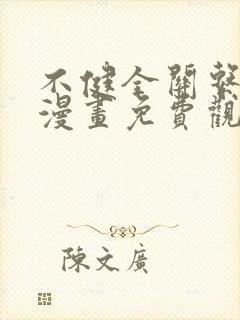 不健全關繫
漫畫免費觀
陳文廣